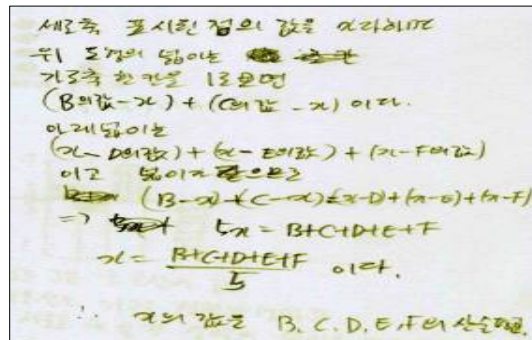 세로축 표시한 점의 값을 x라하면
위 도형의 넓이는
가로축 한칸을 1로 보면
(B의값-x) + (C의값-x) 이다.
아래넓이는
(x-D의값) + (x-E의값) + (x-F의값)
이고 넓이가 같으므로
(B-x)+(C-x)=(x-D)+(x-E)+(x-F)
=> 5x = B+C+D+E+F
x = B+C+D+E+F / 5 이다.
∴ x의 값은 B, C, D, E, F의 산술평균.